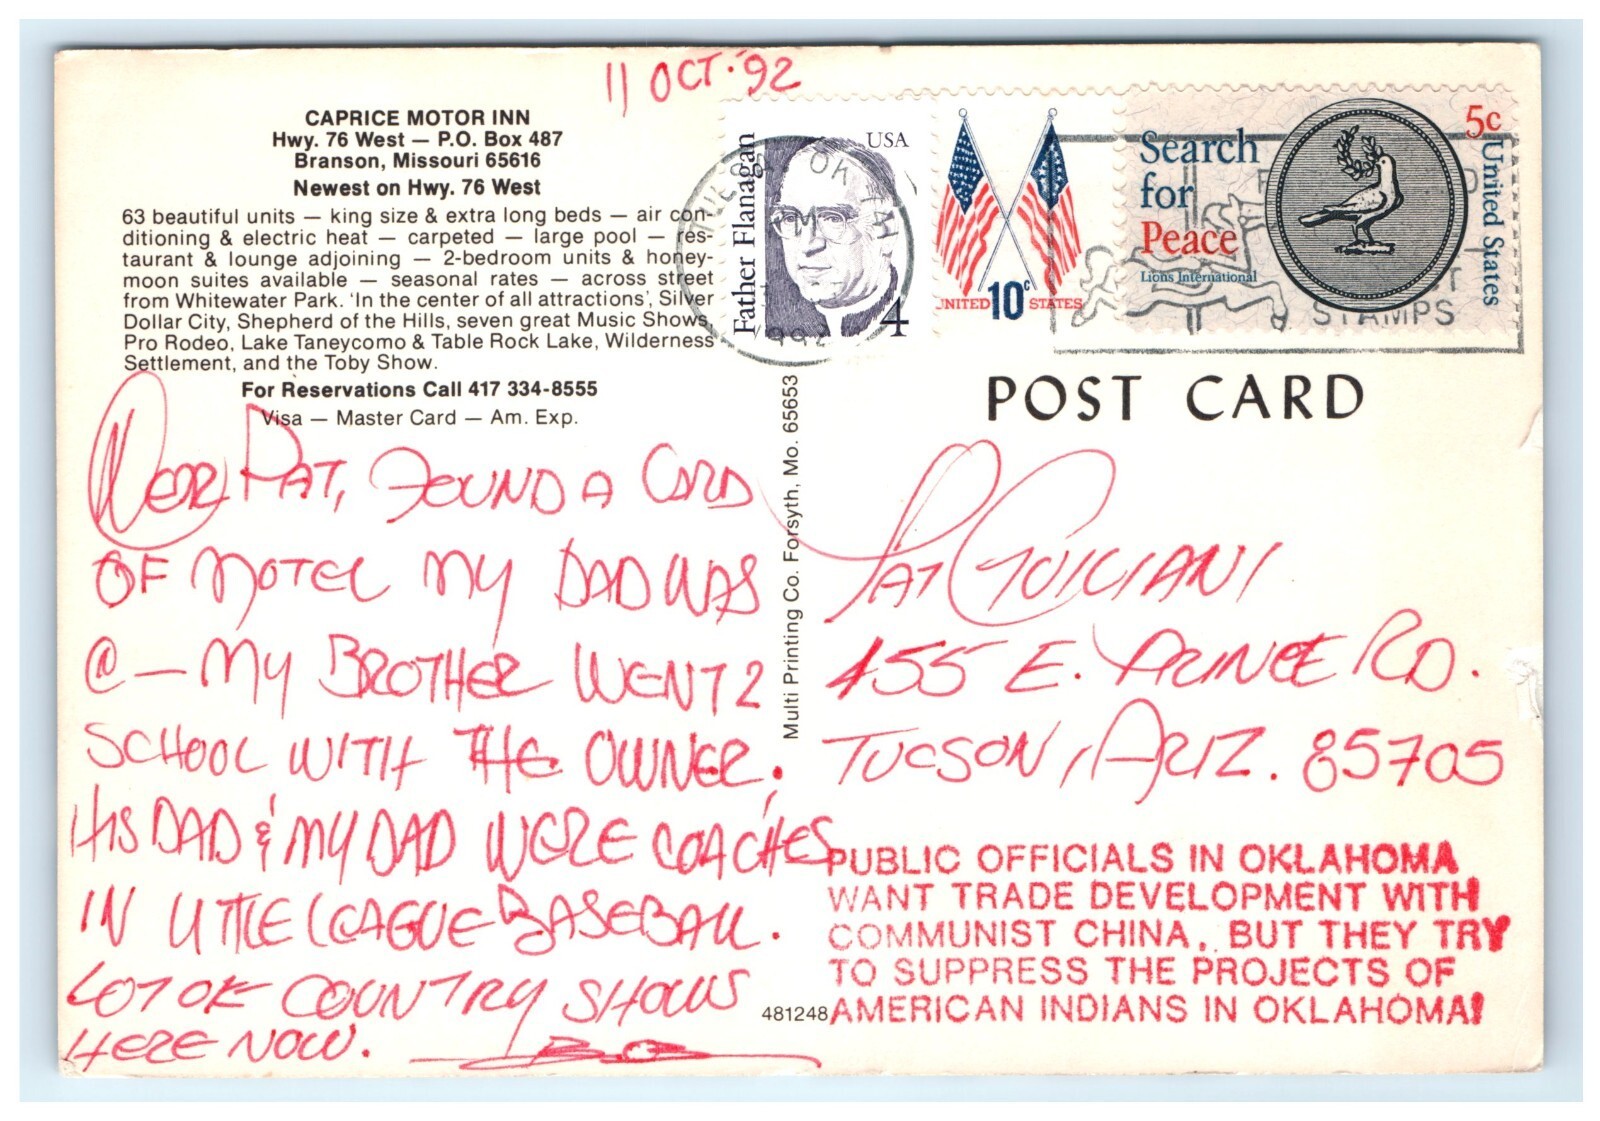 11 OCT. '92
CAPRICE MOTOR INN
Hwy. 76 West — P.O. Box 487
Branson, Missouri 65616
Newest on Hwy. 76 West
63 beautiful units — king size & extra long beds — air con-
ditioning & electric heat — carpeted — large pool — res-
taurant & lounge adjoining — 2-bedroom units & honey-
moon suites available — seasonal rates — across street
from Whitewater Park. 'In the center of all attractions', Silver
Dollar City, Shepherd of the Hills, seven great Music Shows,
Pro Rodeo, Lake Taneycomo & Table Rock Lake, Wilderness
Settlement, and the Toby Show.
For Reservations Call 417 334-8555
Visa — Master Card — Am. Exp.
DEAR PAT, FOUND A CARD
OF MOTEL MY DAD WAS
@ — MY BROTHER WENT 2
SCHOOL WITH THE OWNER.
HIS DAD & MY DAD WERE COACHES
IN LITTLE LEAGUE BASEBALL.
LOT OF COUNTRY SHOWS
HERE NOW.
Multi Printing Co. Forsyth, Mo. 65653
481248
Father Flanagan
USA
4
UNITED 10c STATES
Search
for
Peace
Lions International
5c
United States
OK
1992
STAMPS
POST CARD
PAT GUILIANI
455 E. PRINCE RD.
TUCSON, ARIZ. 85705
PUBLIC OFFICIALS IN OKLAHOMA
WANT TRADE DEVELOPMENT WITH
COMMUNIST CHINA, BUT THEY TRY
TO SUPPRESS THE PROJECTS OF
AMERICAN INDIANS IN OKLAHOMA!